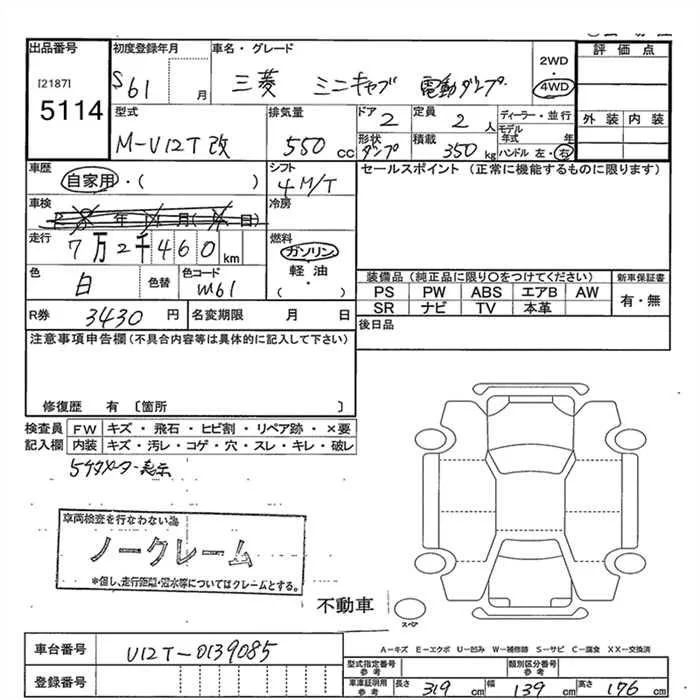 出品番号 初度登録年月 車名・グレード 2WD 4WD 評価点
[2187] S61 月 三菱 ミニキャブ 電動ダンプ
5114
型式 排気量 ドア 2 定員 2 人 ディーラー・並行 外装 内装
M-V12T改 550 cc 形状 ダンプ 積載 350 kg モデル年式 年 ハンドル 左・右
車歴 シフト セールスポイント (正常に機能するものに限ります)
自家用・( ) 4 M/T
車検 冷房
年 月( 日)
走行 燃料
7万2千460km ガソリン
色 色替 色コード 軽油 装備品 (純正品に限り○をつけてください) 新車保証書
白 M61 ・ PS PW ABS エアB AW 有・無
( ) SR ナビ TV 本革
R券 3430 円 名変期限 月 日 後日品
注意事項申告欄 (不具合内容等は具体的に記入して下さい)
修復歴 有 〔箇所 〕
検査員 FW キズ・飛石・ヒビ割・リペア跡・×要
記入欄 内装 キズ・汚レ・コゲ・穴・スレ・キレ・破レ
5ケタメーター表示
車両検査を行なわない為
ノークレーム
*但し、走行距離・冠水等についてはクレームとする。
不動車
スペア
A-キズ E-エクボ U-凹み W-補修跡 S-サビ C-腐食 XX-交換済
車台番号 V12T-0139085 型式指定番号 参考 類別区分番号 参考
登録番号 車庫証明用 参考 長さ 319 cm 幅 139 cm 高さ 176 cm